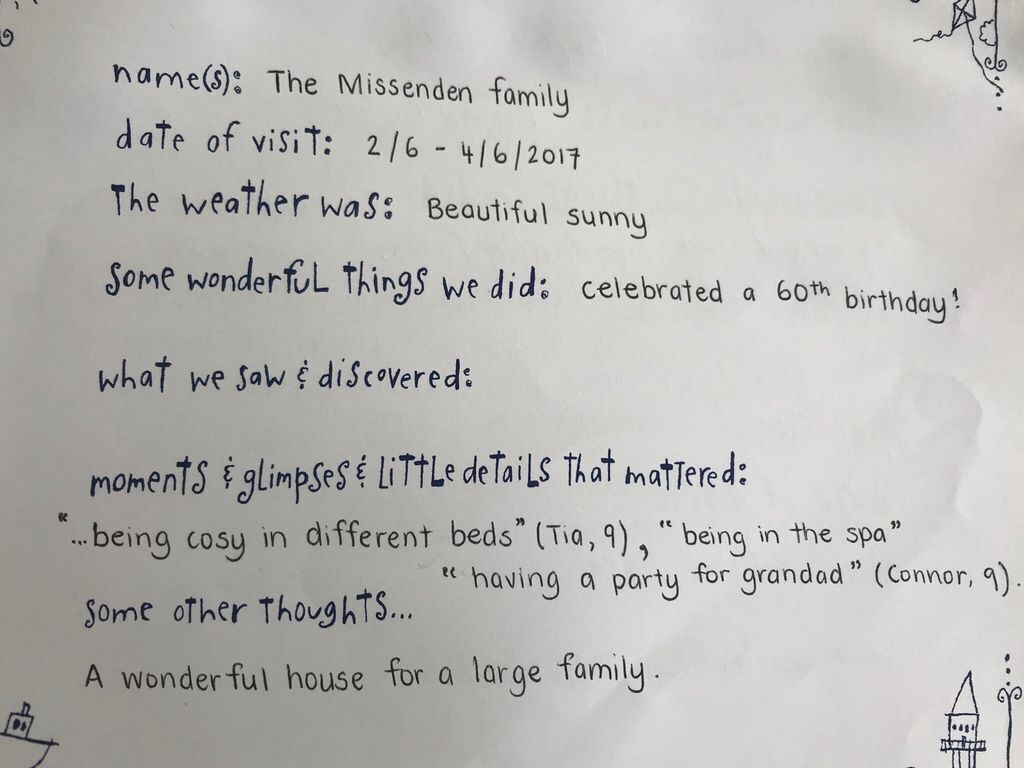 name(s): The Missenden family
date of visit: 2/6 - 4/6/2017
The weather was: Beautiful sunny
some wonderful things we did: celebrated a 60th birthday!
what we saw & discovered:
moments & glimpses & little details that mattered:
"...being cosy in different beds" (Tia, 9), "being in the spa"
"having a party for grandad" (Connor, 9).
some other thoughts...
A wonderful house for a large family.